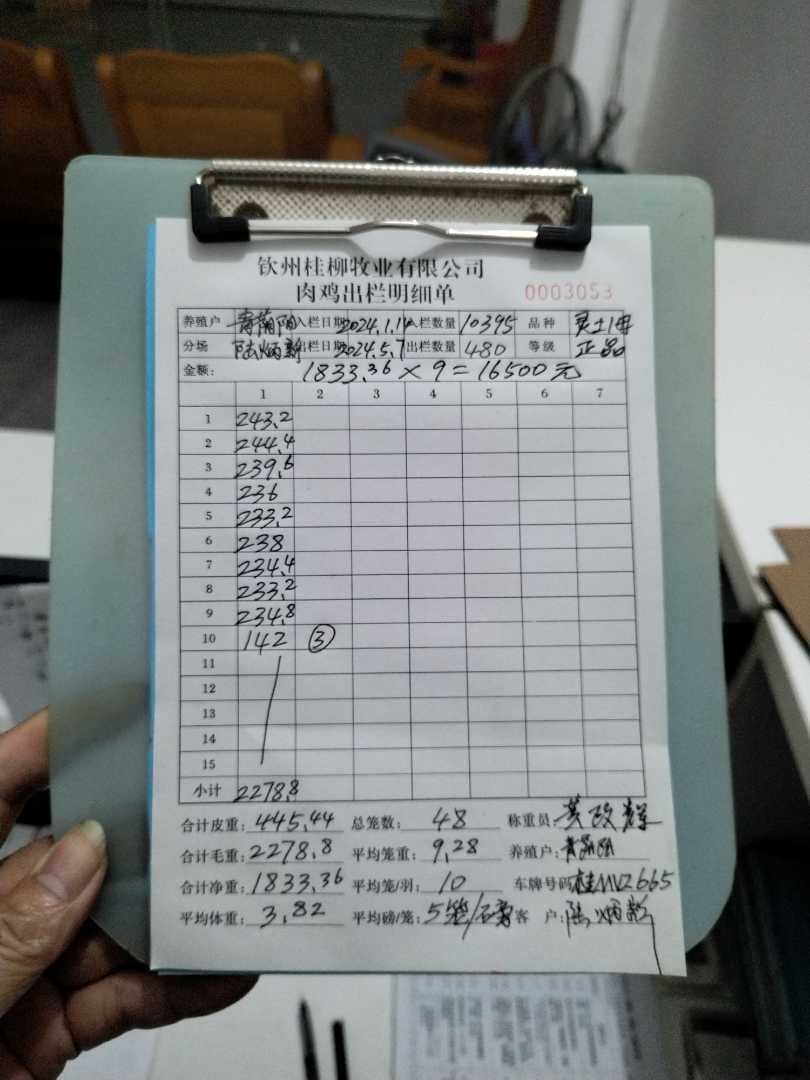 钦州桂柳牧业有限公司
肉鸡出栏明细单 0003053
养殖户 入栏日期 2024.1.14 入栏数量 10395 品种
分场 陆炳新 出栏日期 2024.5.7 出栏数量 480 等级 正品
金额: 1833.36 × 9 = 16500 元
1 2 3 4 5 6 7
1 243.2
2 244.4
3 239.6
4 236
5 233.2
6 238
7 234.4
8 233.2
9 234.8
10 142 ③
11
12
13
14
15
小计 2278.8
合计皮重: 445.44 总笼数: 48 称重员: 黄政辉
合计毛重: 2278.8 平均笼重: 9.28 养殖户:
合计净重: 1833.36 平均笼/羽: 10 车牌号码 桂MN2665
平均体重: 3.82 平均磅/笼: 5笼/磅 客 户: 陆炳新